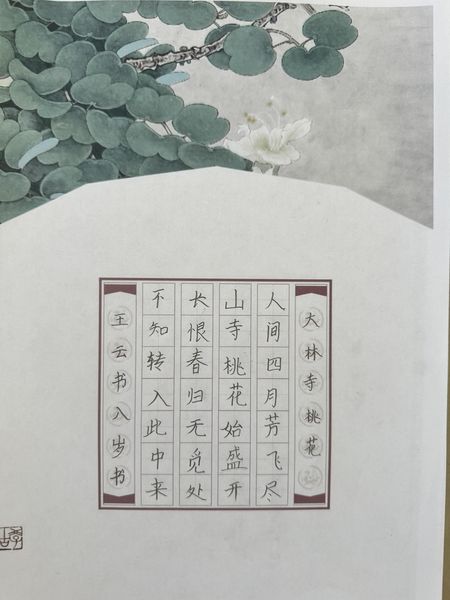 大林寺桃花
人间四月芳飞尽
山寺桃花始盛开
长恨春归无觅处
不知转入此中来
王云书八岁书